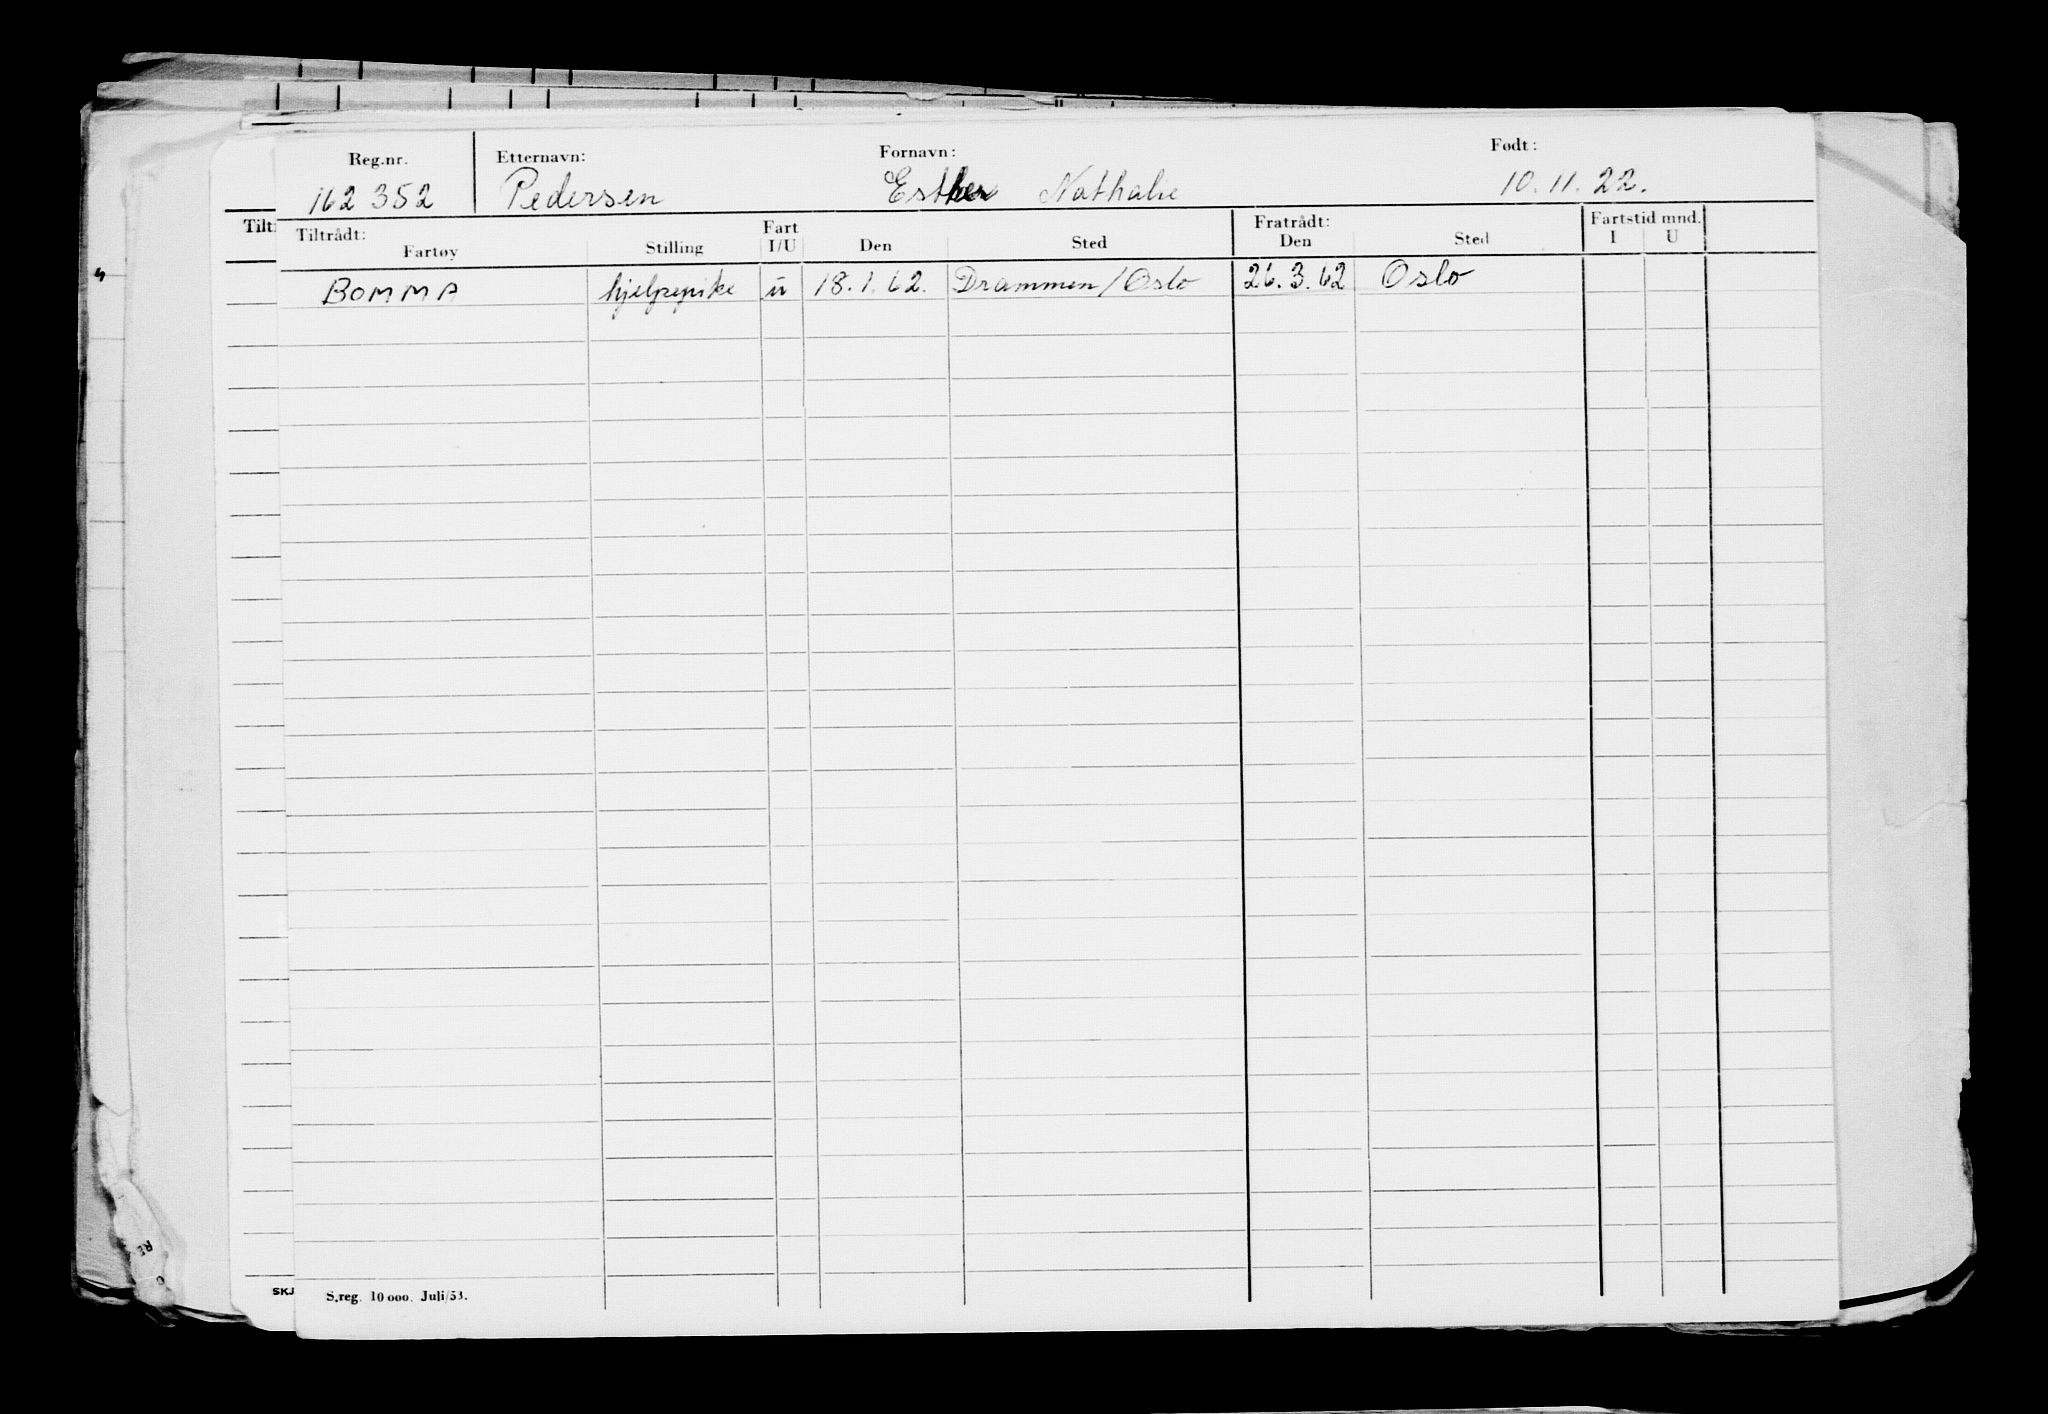 Reg.nr. Etternavn: Fornavn: Født:
162 352 Pedersen Esther Nathalie 10.11.22.
Tiltrådt: Fratrådt: Fartstid mnd.
Fartøy Stilling Fart I/U Den Sted Den Sted I U
BOMMA hjelpepike u 18.1.62. Drammen/Oslo 26.3.62 Oslo
S.reg. 10 000. Juli/53.
SKJ